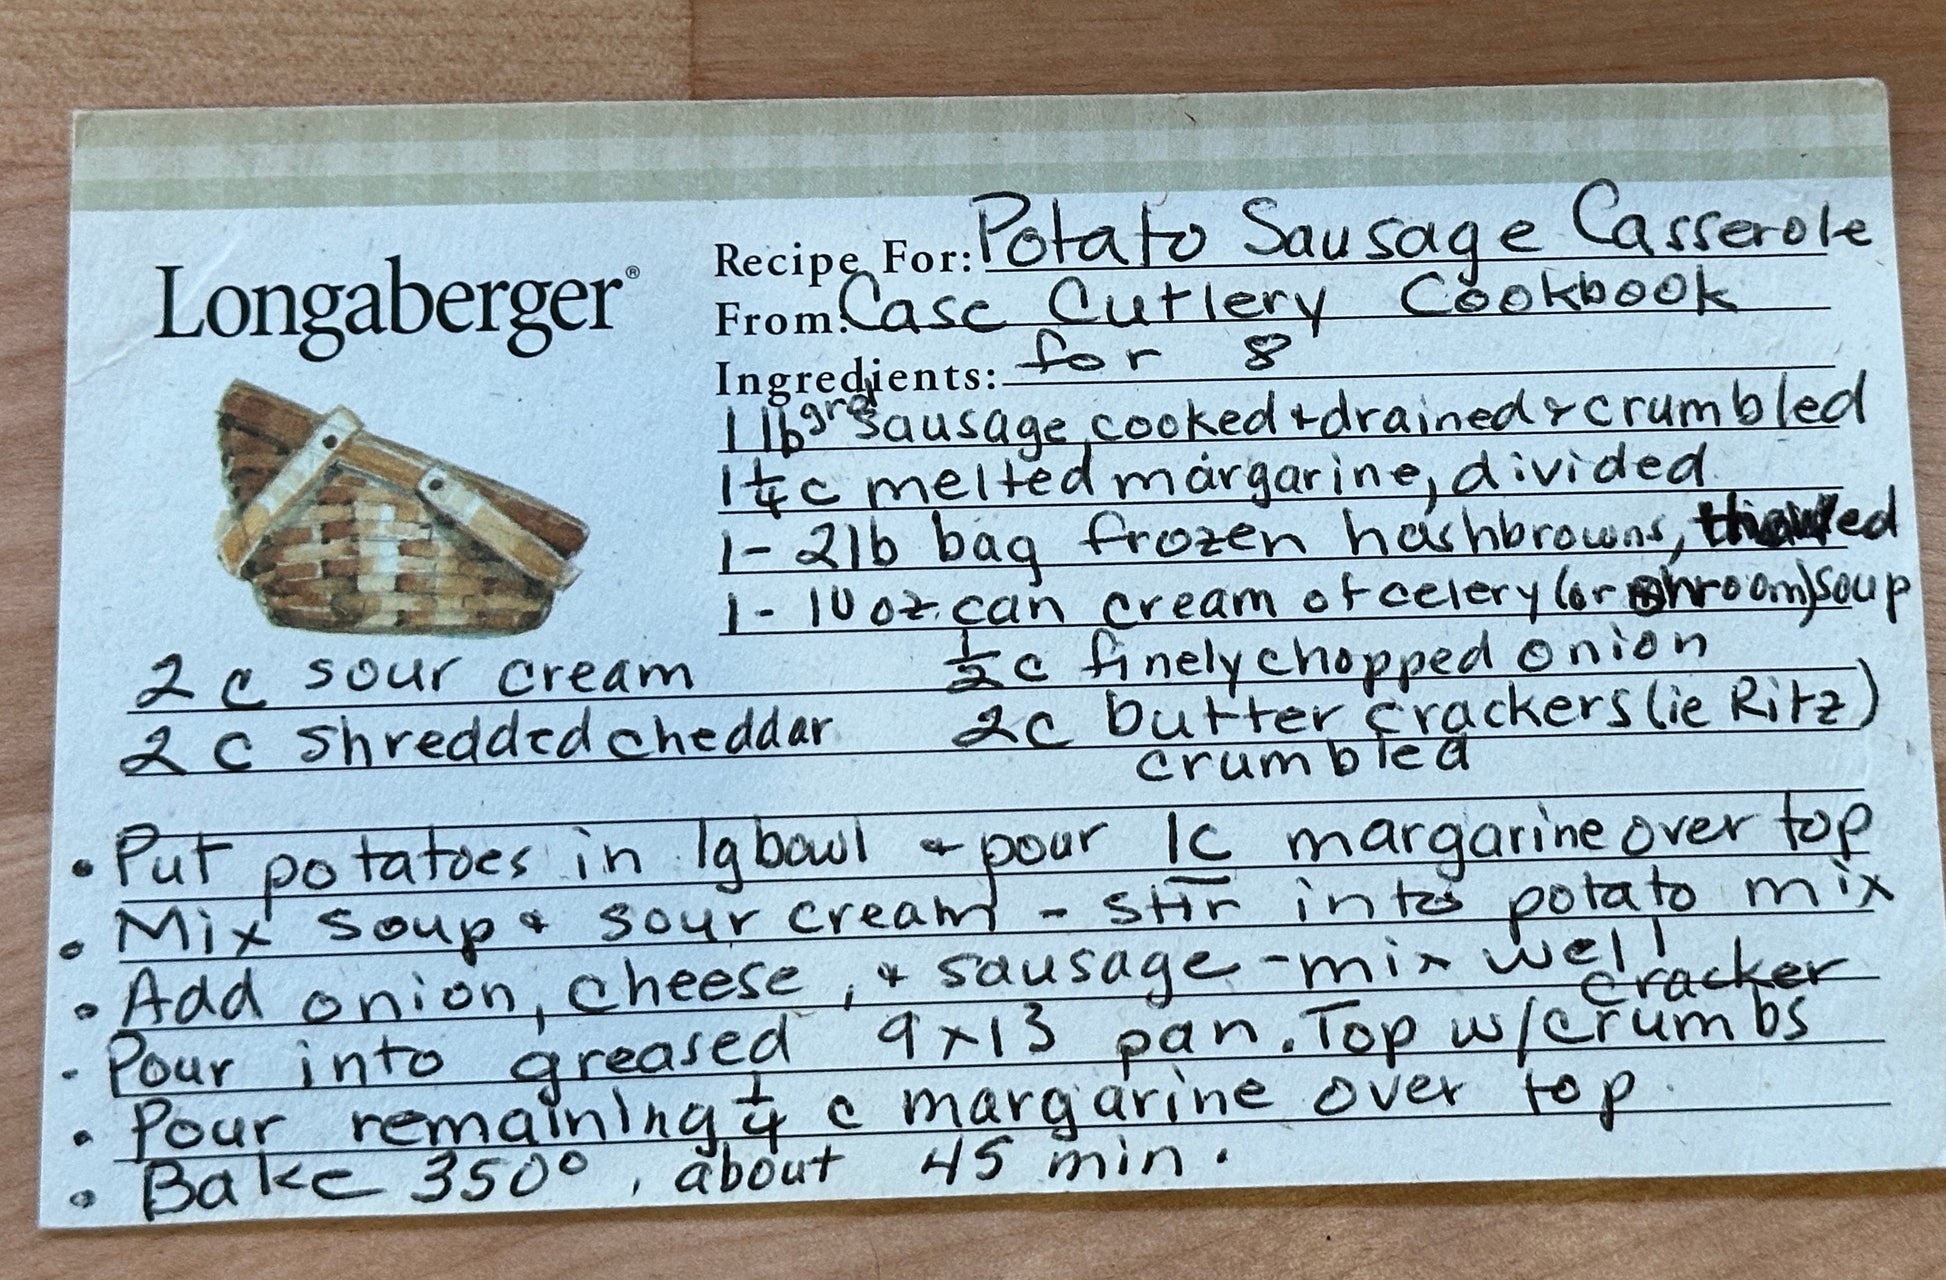 Longaberger®
Recipe For: Potato Sausage Casserole
From: Case Cutlery Cookbook
Ingredients: for 8
1 lb grd sausage, cooked + drained + crumbled
1 1/4 c melted margarine, divided
1 - 2 lb bag frozen hashbrowns, thawed
1 - 10 oz. can cream of celery (or shroom) soup
2 c sour cream 1/2 c finely chopped onion
2 c shredded cheddar 2c butter crackers (ie Ritz)
crumbled
• Put potatoes in lg bowl + pour 1c margarine over top
• Mix soup + sour cream - stir into potato mix
• Add onion, cheese, + sausage - mix well
cracker
- Pour into greased 9x13 pan. Top w/ crumbs
• Pour remaining 1/4 c margarine over top.
• Bake 350°, about 45 min.